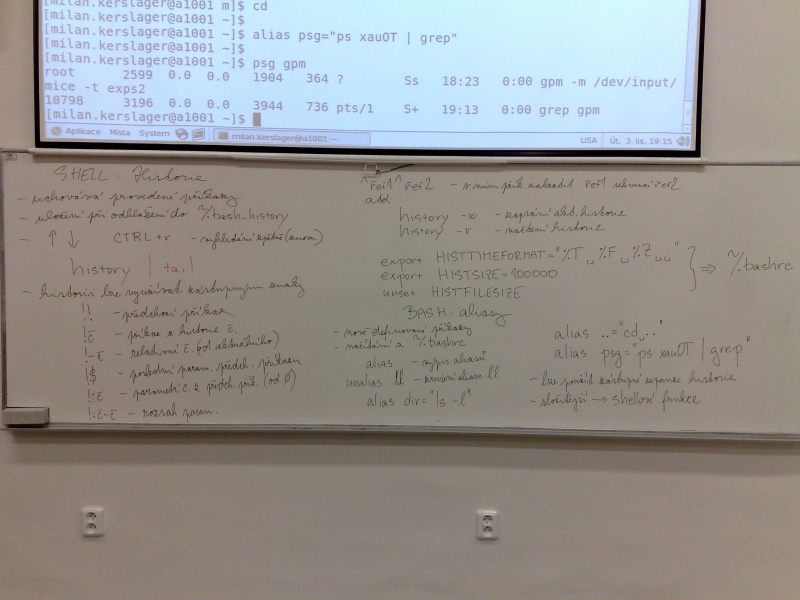 [milan.kerslager@a1001 m]$ cd
[milan.kerslager@a1001 ~]$
[milan.kerslager@a1001 ~]$ alias psg="ps xauOT | grep"
[milan.kerslager@a1001 ~]$
[milan.kerslager@a1001 ~]$ psg gpm
root 2599 0.0 0.0 1904 364 ? Ss 18:23 0:00 gpm -m /dev/input/
mice -t exps2
10798 3196 0.0 0.0 3944 736 pts/1 S+ 19:13 0:00 grep gpm
[milan.kerslager@a1001 ~]$
Aplikace Místa System milan.kerslager@a1001:~ USA Út, 3. lis, 19:15
SHELL: Historie
- uchovává provedené příkazy
- uložení při odhlášení do ~/.bash_history
- ↑ ↓ CTRL+r - vyhledání zpětně (znovu)
history | tail
- historii lze využívat zástupnými znaky
!! - předchozí příkaz
!č - příkaz z historie č.
!-č - relativní č. (od aktuálního)
!$ - poslední param. předch. příkazu
!:č - parametr č. z předch. přík. (od 0)
!:č-č - rozsah param.
^řeť1^řeť2 - v min. přík. nahradit řeť1 řeť2
atd.
history -w - zapsání akt. historie
history -r - načtení historie
export HISTTIMEFORMAT="%T␣%F␣%Z␣␣"
export HISTSIZE=100000
unset HISTFILESIZE
} ⇒ ~/.bashrc
BASH: aliasy
- nově definované příkazy
- načítání z ~/.bashrc
alias - výpis aliasů
unalias ll - zrušení aliasu ll
alias dir="ls -l"
alias ..="cd␣.."
alias psg="ps xauOT | grep"
- lze použít zástupné expanze historie
- složitější → shellové funkce